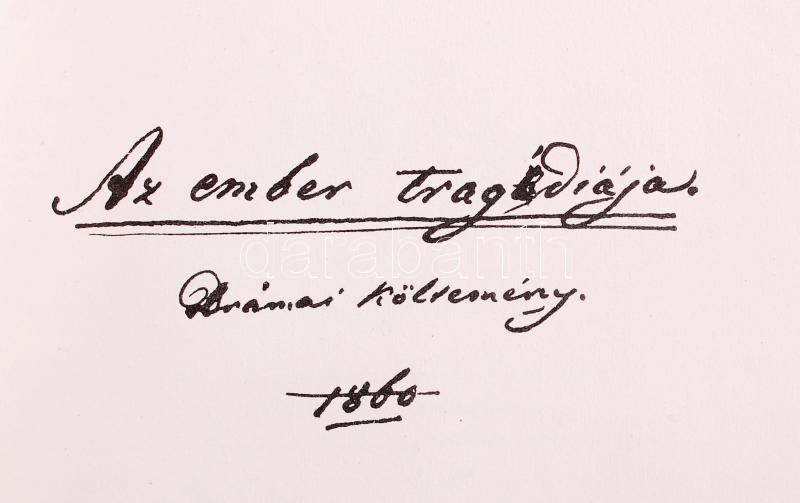 Az ember tragédiája.
darabanth
Drámai költemény.
1860